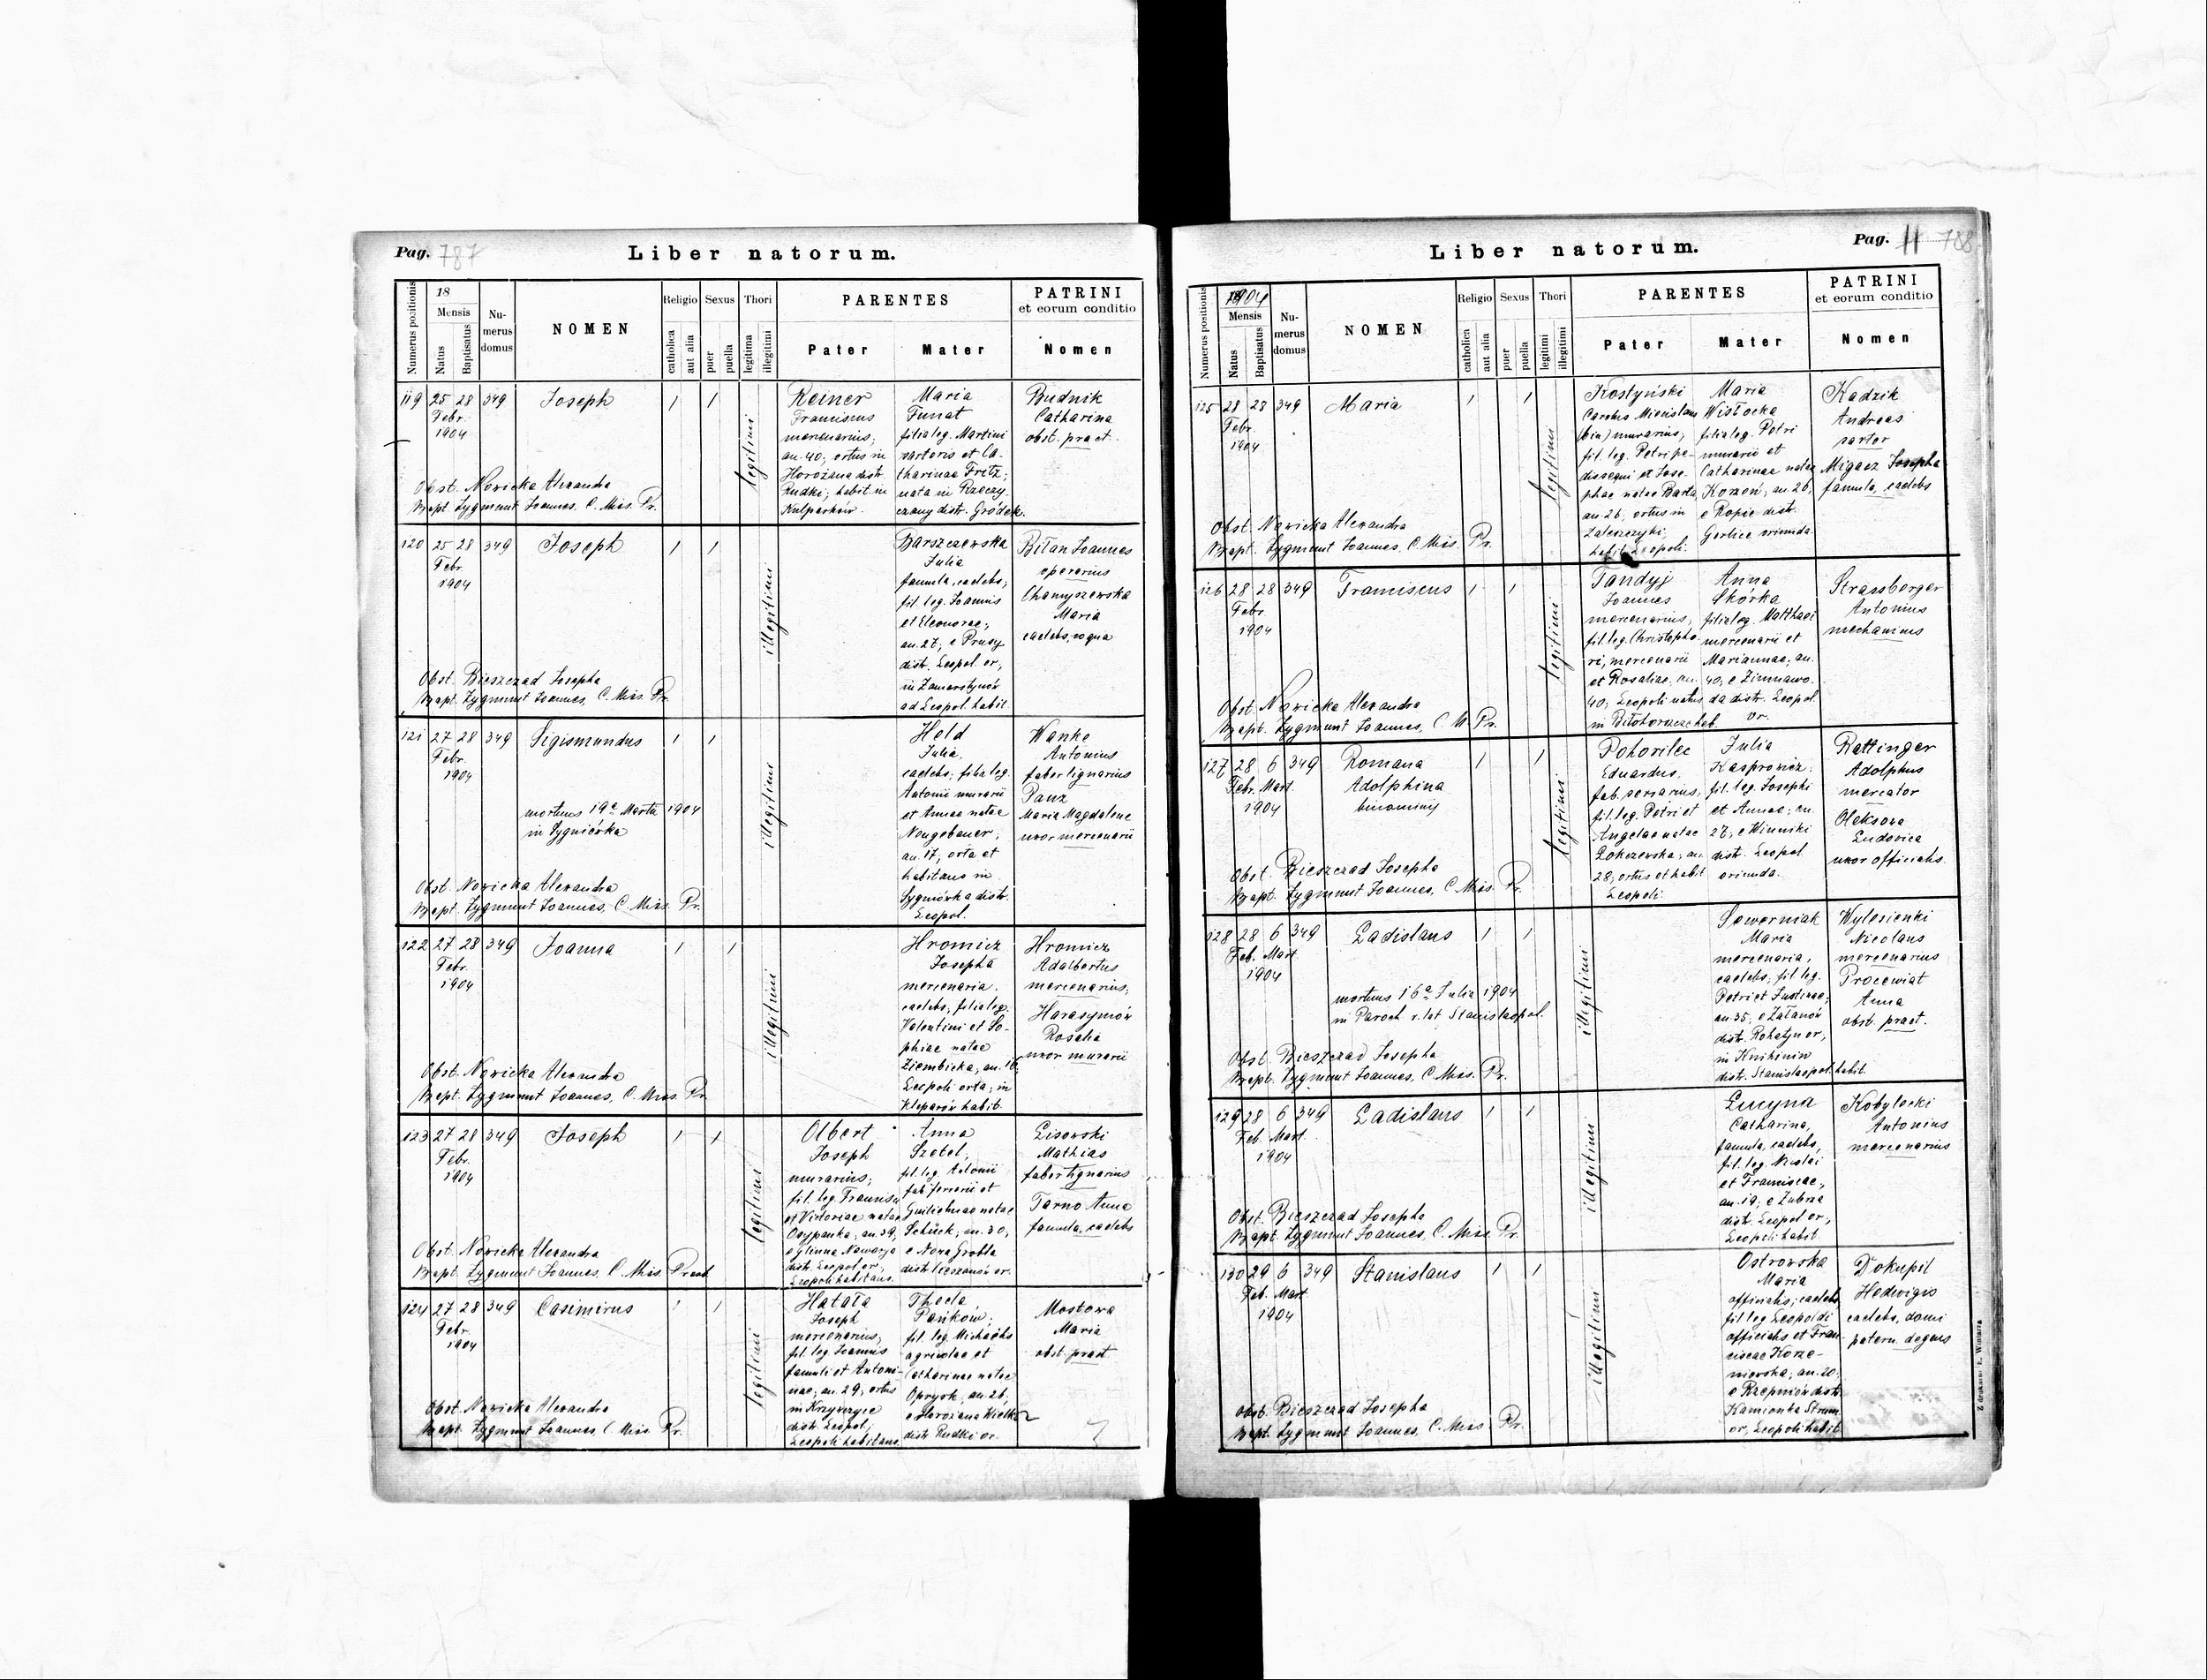 Pag. 787
Liber natorum.
Numerus positionis
18
Mensis
Natus
Baptisatus
Nu-
merus
domus
NOMEN
Religio
catholica
aut alia
Sexus
puer
puella
Thori
legitima
illegitimi
PARENTES
Pater
Mater
PATRINI
et eorum conditio
Nomen
119 25 28 349 Joseph
Febr.
1904
legitimi
Reiner
Franciscus
mercenarius;
an. 40; ortus in
Horożana distr.
Rudki; habit. in
Kulparków.
Maria
Funat
filia leg. Martini
sartoris et Ca-
tharinae Fritz;
nata in Rzeczy-
czany distr. Gródek.
Budnik
Catharina
obst. pract.
Obst. Nowicka Alexandra
Bapt. Zygmunt Joannes, C. Miss. Pr.
120 25 28 349 Joseph
Febr.
1904
illegitimi
Barszczewska
Julia
famula, caelebs;
fil. leg. Joannis
et Eleonorae;
an. 27; e Prusy
distr. Leopol. or.,
in Zamarstynów
ad Leopol. habit.
Bilan Joannes
operarius
Chamyszewska
Maria
caelebs, coqua
Obst. Bieszczad Josepha
Bapt. Zygmunt Joannes, C. Miss. Pr.
121 27 28 349 Sigismundus
Febr.
1904
mortuus 19ª Martii 1904
in Sygniówka
illegitimi
Held
Julia,
caelebs; filia leg.
Antonii murarii
et Annae natae
Neugebauer;
an. 17, orta et
habitans in
Sygniówka distr.
Leopol.
Wanke
Antonius
faber lignarius
Panz
Maria Magdalena
uxor mercenarii
Obst. Nowicka Alexandra
Bapt. Zygmunt Joannes, C. Miss. Pr.
122 27 28 349 Joanna
Febr.
1904
illegitimi
Hromicz
Josepha
mercenaria,
caelebs, filia leg.
Valentini et So-
phiae natae
Ziembicka, an. 16,
Leopoli orta, in
Kleparów habit.
Hromicz
Adalbertus
mercenarius;
Harasymów
Rosalia
uxor murarii
Obst. Nowicka Alexandra
Bapt. Zygmunt Joannes, C. Miss. Pr.
123 27 28 349 Joseph
Febr.
1904
legitimi
Olbert
Joseph
murarius;
fil. leg. Francisci
et Victoriae natae
Osypanka; an. 39,
e Glinna Nawarya
distr. Leopol. or.,
Leopoli habitans.
Anna
Szetel,
fil. leg. Antonii
fab. ferrarii et
Guilielminae natae
Schück, an. 30,
e Nowa Grobla
distr. Cieszanów or.
Lisowski
Mathias
faber lignarius
Tarno Anna
famula, caelebs
Obst. Nowicka Alexandra
Bapt. Zygmunt Joannes, C. Miss. Presb.
124 27 28 349 Casimirus
Febr.
1904
legitimi
Hatała
Joseph
mercenarius,
fil. leg. Joannis
famuli et Antoni-
nae; an. 29; ortus
in Krzywczyce
distr. Leopol.,
Leopoli habitans.
Thecla
Pańków;
fil. leg. Michaelis
agricolae et
Catharinae natae
Oprysk, an. 26,
e Horożana Wielka
distr. Rudki or.
Mostowa
Maria
obst. pract.
Obst. Nowicka Alexandra
Bapt. Zygmunt Joannes C. Miss. Pr.
Liber natorum.
Pag. 788
Numerus positionis
1904
Mensis
Natus
Baptisatus
Nu-
merus
domus
NOMEN
Religio
catholica
aut alia
Sexus
puer
puella
Thori
legitimi
illegitimi
PARENTES
Pater
Mater
PATRINI
et eorum conditio
Nomen
125 28 28 349 Maria
Febr.
1904
legitimi
Kostyński
Carolus Mieceslaus
(bin) murarius;
fil. leg. Petri pe-
dissequi et Jose-
phae natae Barta,
an. 26, ortus in
Zaleszczyki,
habit. Leopoli.
Maria
Wisłocka
filia leg. Petri
murarii et
Catharinae natae
Korzeń, an. 26,
e Ropie distr.
Gorlice oriunda.
Kadzik
Andreas
sartor
Migacz Josepha
famula, caelebs
Obst. Nowicka Alexandra
Bapt. Zygmunt Joannes, C. Miss. Pr.
126 28 28 349 Franciscus
Febr.
1904
legitimi
Tandyj
Joannes
mercenarius,
fil. leg. Christopho-
ri, mercenarii
et Rosaliae, an.
40; Leopoli natus
in Biłohorszcze hab.
Anna
Skórka
filia leg. Matthaei
mercenarii et
Mariannae; an.
40; e Zimnawo-
da distr. Leopol.
or.
Strassberger
Antonius
mechanicus
Obst. Nowicka Alexandra
Bapt. Zygmunt Joannes, C. M. Pr.
127 28 6 349 Romana
Febr. Mart.
1904
Adolphina
binominy
legitimi
Pohorilec
Eduardus,
fab. serrarius,
fil. leg. Petri et
Angelae natae
Łokczewska, an.
28, ortus et habit.
Leopoli
Julia
Kasprowicz
fil. leg. Josephi
et Annae; an.
27; e Winniki
distr. Leopol.
oriunda.
Rattinger
Adolphus
mercator
Oleksowa
Ludovica
uxor officialis.
Obst. Bieszczad Josepha
Bapt. Zygmunt Joannes, C. Miss. Pr.
128 28 6 349 Ladislaus
Feb. Mart.
1904
mortuus 16ª Julii 1904
in Paroch. r. lat. Stanislaopol.
illegitimi
Sewerniak
Maria
mercenaria,
caelebs; fil. leg.
Petri et Justinae;
an. 35; e Załanów
distr. Rohatyn or.,
in Knihinin
distr. Stanislaopol. habit.
Wylesienki
Nicolaus
mercenarius
Procewiat
Anna
obst. pract.
Obst. Bieszczad Josepha
Bapt. Zygmunt Joannes, C. Miss. Pr.
129 28 6 349 Ladislaus
Feb. Mart.
1904
illegitimi
Lucyna
Catharina,
famula, caelebs,
fil. leg. Nicolai
et Franciscae,
an. 19; e Zubrza
distr. Leopol. or.,
Leopoli habit.
Kobylecki
Antonius
mercenarius
Obst. Bieszczad Josepha
Bapt. Zygmunt Joannes, C. Miss. Pr.
130 29 6 349 Stanislaus
Feb. Mart.
1904
illegitimi
Ostrowska
Maria
officialis; caelebs
fil. leg. Leopoldi
officialis et Fran-
ciscae Korze-
niowska, an. 20;
e Rzepniów distr.
Kamionka Strum.
or., Leopoli habit.
Dokupil
Hedwigis
caelebs, domi
patern. degens
Obst. Bieszczad Josepha
Bapt. Zygmunt Joannes, C. Miss. Pr.
Z drukarni E. Winiarza